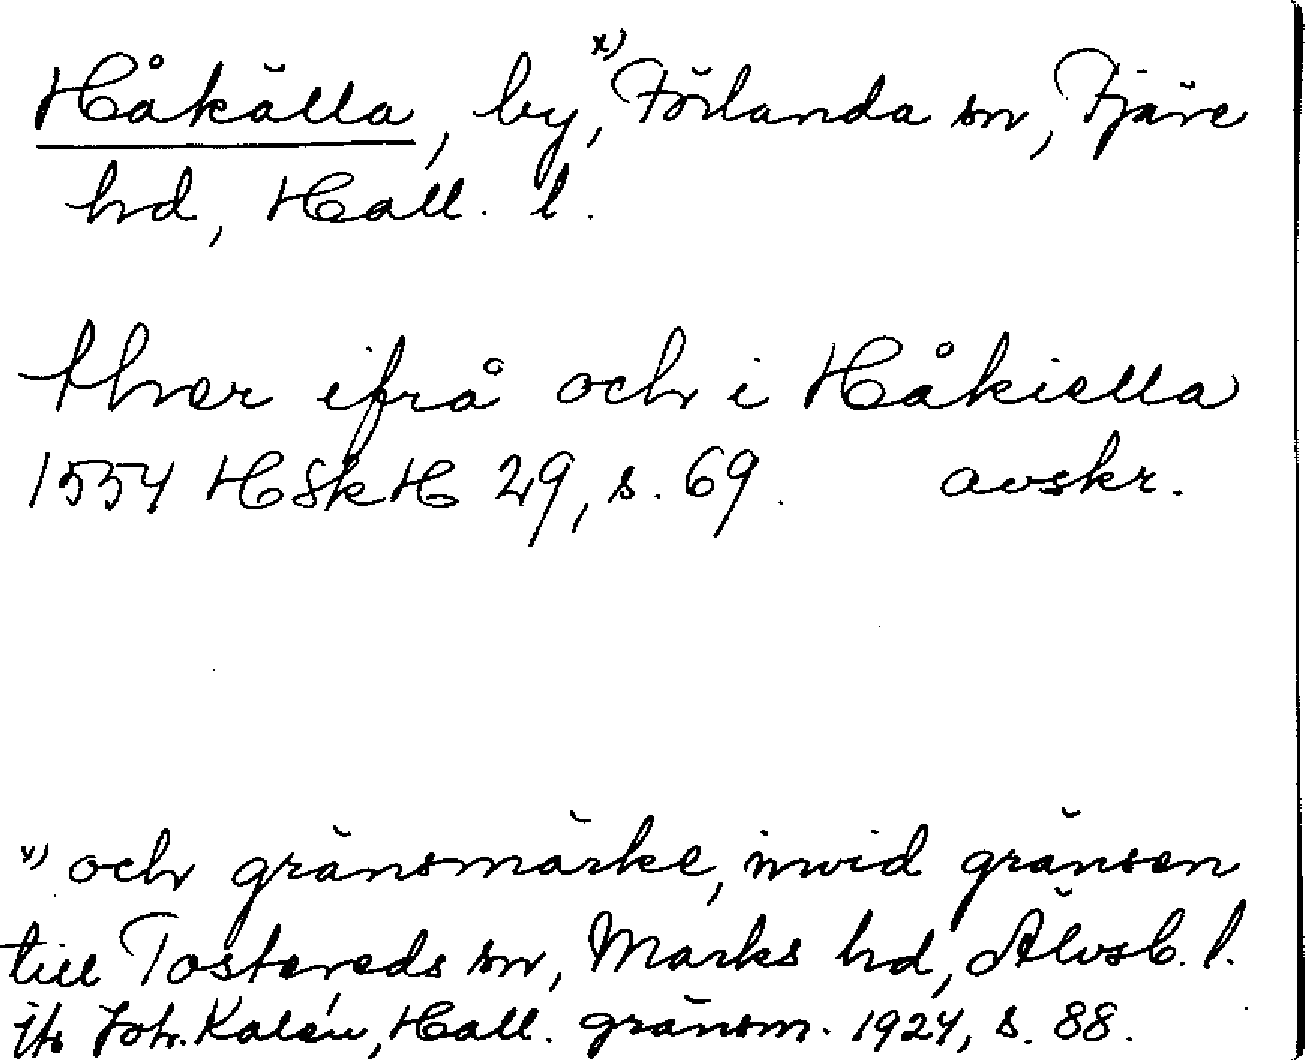 Håkälla, by, x) Förlanda sn, Fjäre
hd, Hall. l.
thær ifrå och i Håkiella
1554 HSkH 29, s. 69. avskr.
x) och gränsmärke, invid gränsen
till Tostareds sn, Marks hd, Älvsb. l.
jfr Joh. Kalén, Hall. gränsm. 1924, s. 88.